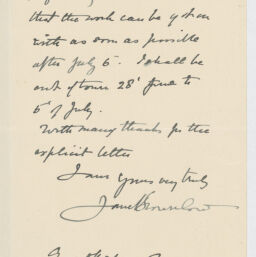 that the work can be got on
with as soon as possible
after July 6. I shall be
out of town 28' June to
5th of July.
With many thanks for the
explicit letter
I am yours very truly